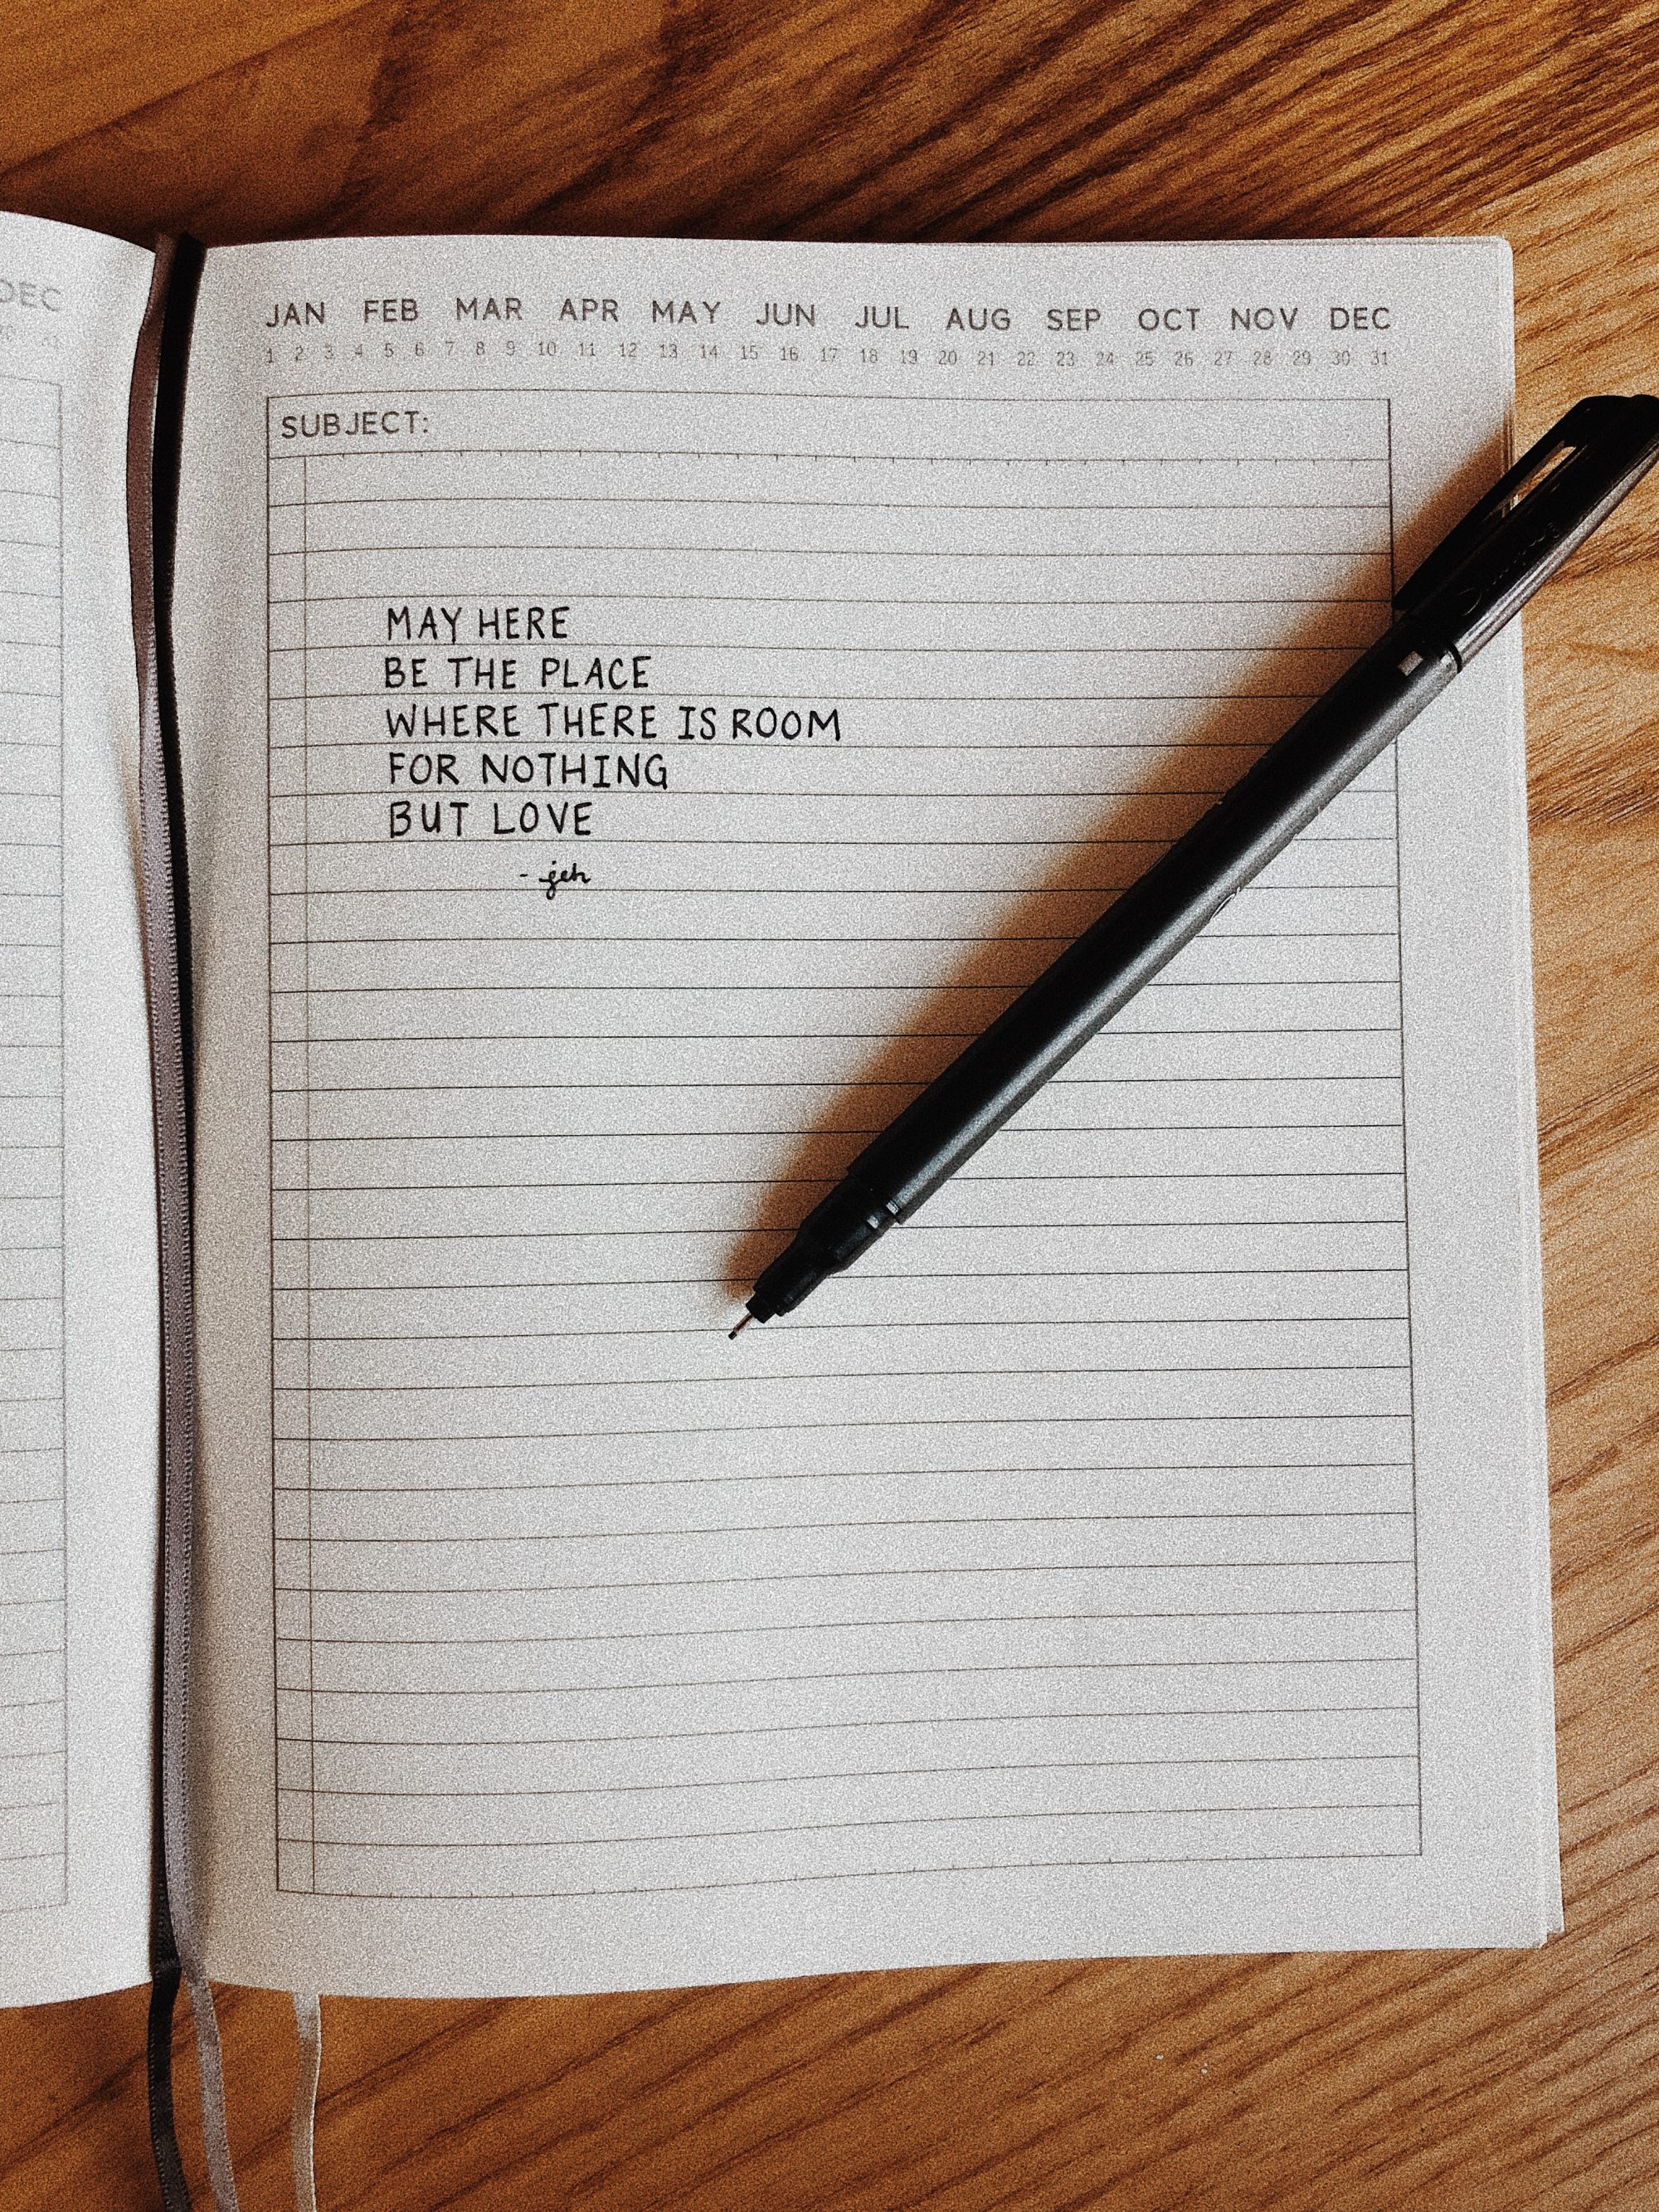 DEC
JAN FEB MAR APR MAY JUN JUL AUG SEP OCT NOV DEC
1 2 3 4 5 6 7 8 9 10 11 12 13 14 15 16 17 18 19 20 21 22 23 24 25 26 27 28 29 30 31
SUBJECT:
MAY HERE
BE THE PLACE
WHERE THERE IS ROOM
FOR NOTHING
BUT LOVE
- jeh